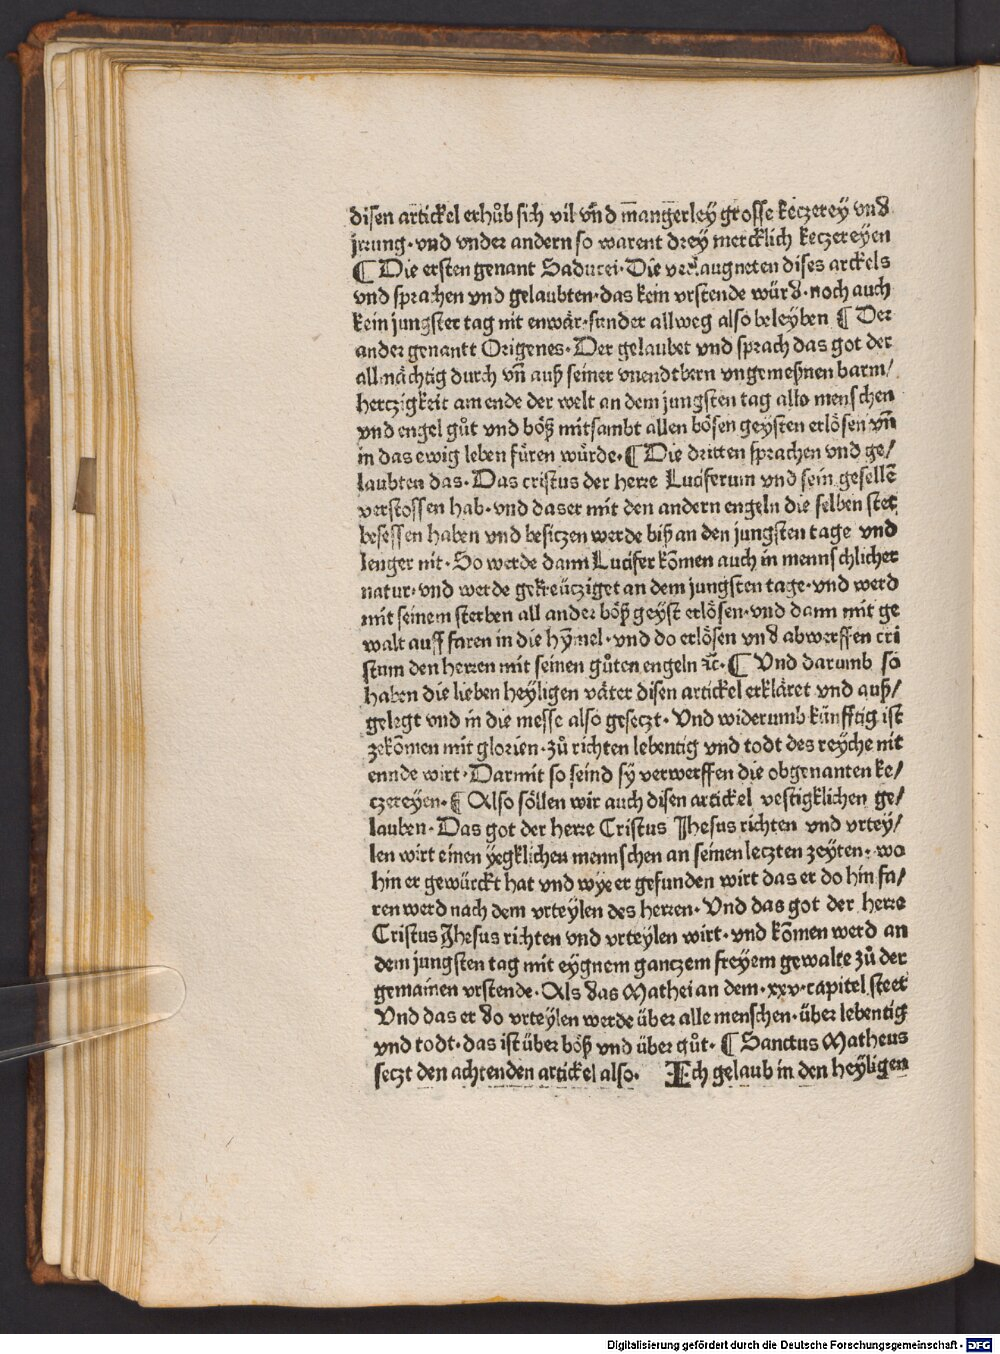 disen artickel erhůb sich vil vn̄d mangerley grosse keczerey vnd
jrrung · vnd vnder andern so warent drey mercklich keczereyen
¶ Die ersten genant Saducei · Die verlaugneten dises arckels
vnd sprachen vnd gelaubten · das kein vrstende würd · noch auch
kein jungster tag nit enwår · sunder allweg also beleyben ¶ Der
ander genantt Origenes · Der gelaubet vnd sprach das got der
allmåchtig durch vn̄ auß seiner vnendtbern vngemeßnen barm/
herczigkeit am ende der welt an dem jungsten tag alle menschen
vnd engel gůt vnd bőß mitsambt allen bősen geysten erlősen vn̄
in das ewig leben füren würde · ¶ Die dritten sprachen vnd ge/
laubten das · Das cristus der herre Luciferum vnd sein gesellē
verstossen hab · vnd das er mit den andern engeln die selben stet
besessen haben vnd besiczen werde biß an den jungsten tage vnd
lenger nit · So werde dann Lucifer kōmen auch in mennschlicher
natur · vnd werde gekreücziget an dem jungsten tage · vnd werd
mit seinem sterben all ander bőß geyst erlősen · vnd dann mit ge
walt auff faren in die hȳmel · vnd do erlősen vnd abwerffen cri
stum den herren mit seinen gůten engeln ꝛc̄ · ¶ Vnd darumb so
haben die lieben heyligen våter disen artickel erklåret vnd auß/
gelegt vnd in die messe also geseczt · Vnd widerumb künfftig ist
zekōmen mit glorien · zů richten lebentig vnd todt des reyche nit
ennde wirt · Darmit so seind sy verwerffen die obgenanten ke/
czereyen · ¶ Also sőllen wir auch disen artickel vestigklichen ge/
lauben · Das got der herre Cristus Jhesus richten vnd vrtey/
len wirt einen yegklichen mennschen an seinen leczten zeyten · wo
hin er gewürckt hat vnd wye er gefunden wirt das er do hin fa/
ren werd nach dem vrteylen des herren · Vnd das got der herre
Cristus Jhesus richten vnd vrteylen wirt · vnd kōmen werd an
dem jungsten tag mit eygnem ganczem freyem gewalte zů der
gemainen vrstende · Als das Mathei an dem · xxv · capitel steet
Vnd das er do vrteylen werde über alle menschen · über lebentig
vnd todt · das ist über bőß vnd über gůt · ¶ Sanctus Matheus
seczt den achtenden artickel also · Ich gelaub in den heyligen
Digitalisierung gefördert durch die Deutsche Forschungsgemeinschaft - DFG